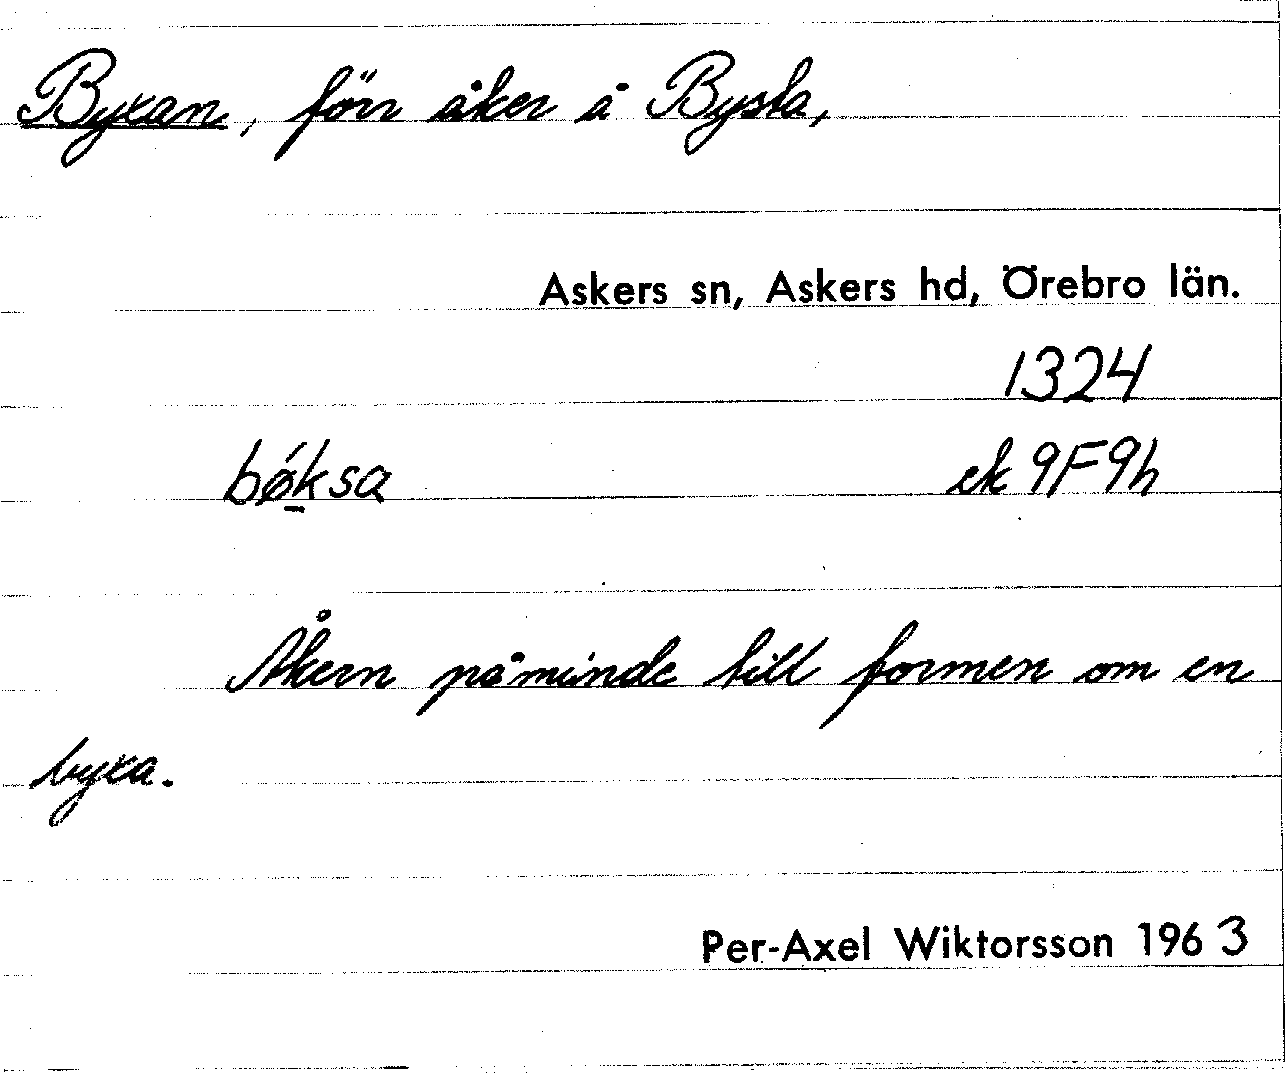 Byxan, förr åker å Bysta,
Askers sn, Askers hd, Örebro län.
1324
bǿ̱ksa ek 9F9h
Åkern påminde till formen om en
byxa.
Per-Axel Wiktorsson 1963